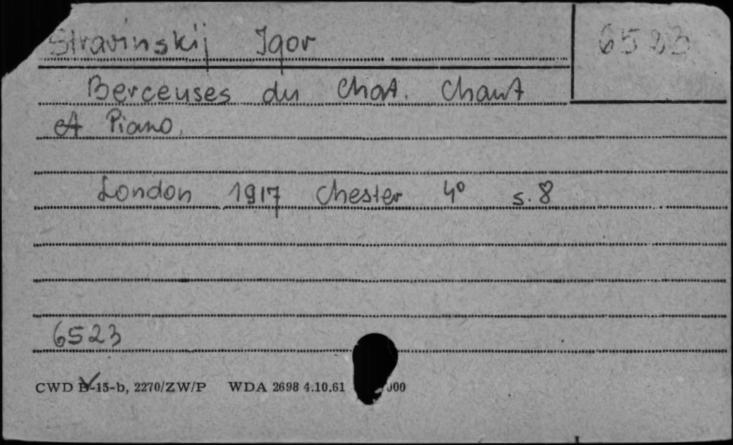 Stravinskij Igor
6523
Berceuses du Chat. Chant
et Piano.
London 1917 Chester 4° s. 8
6523
CWD D-15-b, 2270/ZW/P WDA 2698 4.10.61 000